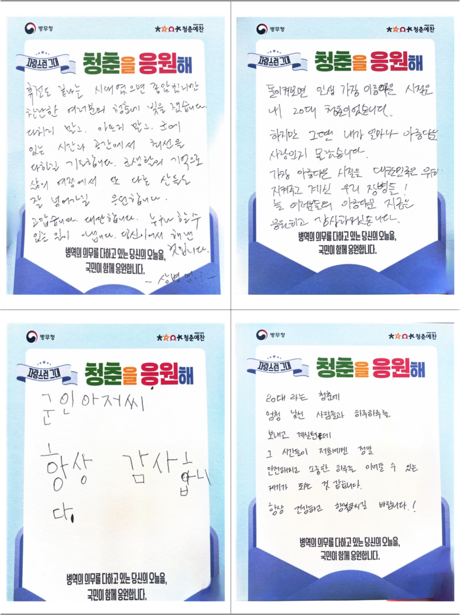 병무청
청춘예찬
자랑스런 그대
청춘을 응원해
하는 시대
여러분의
다치지 말고. 아프지 말고. 군에
있는 시간과 공간에서 최선을
다하길 기도합니다. 군생활의 기억으로
삶의 여정에서 또 다른 산들도
잘 넘어가길 응원합니다.
고맙습니다. 대단합니다. 누구나 할 수
있는 일이 아닙니다. 당신이어서 해낸
것입니다.
병역의 의무를 다하고 있는 당신의 오늘을,
국민이 함께 응원합니다.
병무청
청춘예찬
자랑스런 그대
청춘을 응원해
돌이켜보면 인생 가장 아름다운 시절은
내 20대 청춘이었습니다.
하지만 그때는 내가 얼마나 아름다운
사람인지 몰랐습니다.
가장 아름다운 시절을 대한민국을 위해
지켜주고 계신 우리 장병들!
늘 여러분들의 아름다운 지금을
응원하고 감사하겠습니다.
병역의 의무를 다하고 있는 당신의 오늘을,
국민이 함께 응원합니다.
병무청
청춘예찬
자랑스런 그대
청춘을 응원해
군인아저씨
항상 감사합니
다.
병역의 의무를 다하고 있는 당신의 오늘을,
국민이 함께 응원합니다.
병무청
청춘예찬
자랑스런 그대
청춘을 응원해
20대 라는 청춘에
엄청 낯선 사람들과 하루하루를
보내고 계실텐데
그 시간들이 저희에겐 정말
안전하고 소중한 하루를 이어갈 수 있는
계기가 되는 것 같습니다.
항상 건강하고 행복하시길 바랍니다.!
병역의 의무를 다하고 있는 당신의 오늘을,
국민이 함께 응원합니다.